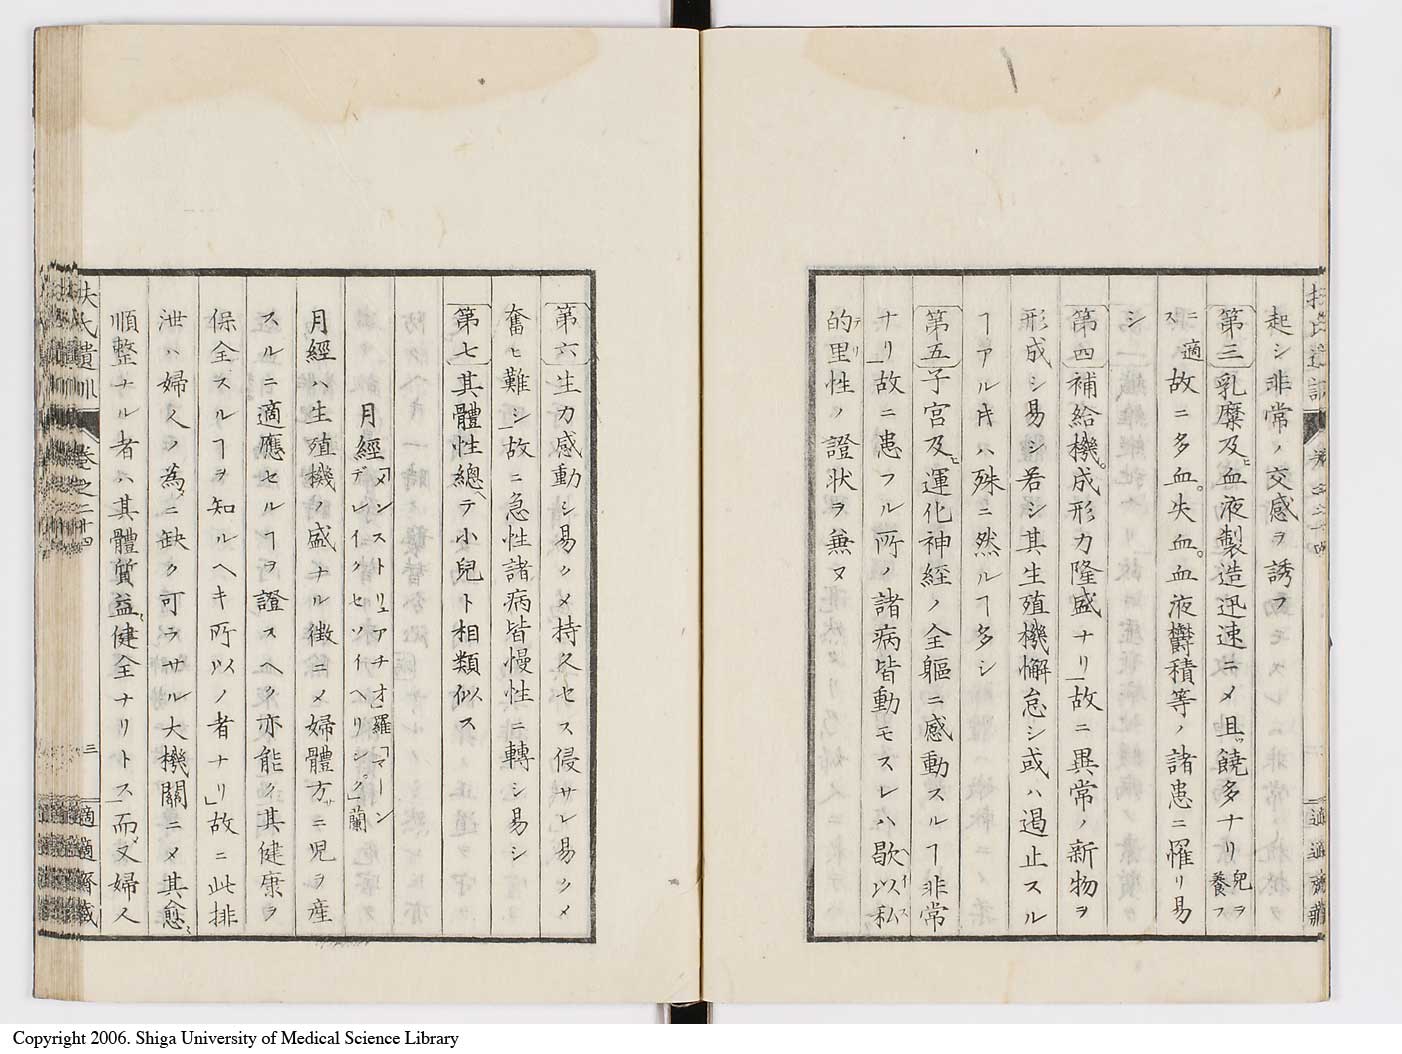 起シ非常ノ交感ヲ誘フ
第三乳糜及ヒ血液製造迅速ニメ且ツ饒多ナリ兒ヲ養フ
ニ適ス故ニ多血。失血。血液欝積等ノ諸患ニ罹リ易
シ
第四補給機。成形力隆盛ナリ」故ニ異常ノ新物ヲ
形成シ易シ若シ其生殖機懈怠シ或ハ遏止スル
ヿアル片ハ殊ニ然ルヿ多シ
第五子宮及ヒ運化神経ノ全軀ニ感動スルヿ非常
ナリ」故ニ患フル所ノ諸病皆動モスレハ歇以私
的里性ノ證状ヲ兼ヌ
扶氏遺訓
卷之二十四
適適齋藏
第六生力感動シ易クメ持久セス侵サレ易クメ
奮ヒ難シ」故ニ急性諸病皆慢性ニ轉シ易シ
第七其體性總テ小兒ト相類似ス
月經「メンストリュアチオ」羅「マーンデレイクセソイヘリング」蘭
月經ハ生殖機ノ盛ナル徴ニメ婦體方サニ児ヲ産
スルニ適應セルヿヲ證スヘク亦能ク其健康ヲ
保全スルヿヲ知ルヘキ所以ノ者ナリ」故ニ此排
泄ハ婦人ノ為メニ缺ク可ラサル大機關ニメ其愈〻
順整ナル者ハ其體質益〻健全ナリトス」而メ又婦人
扶氏遺訓
卷之二十四
三
適適齋藏
Copyright 2006. Shiga University of Medical Science Library